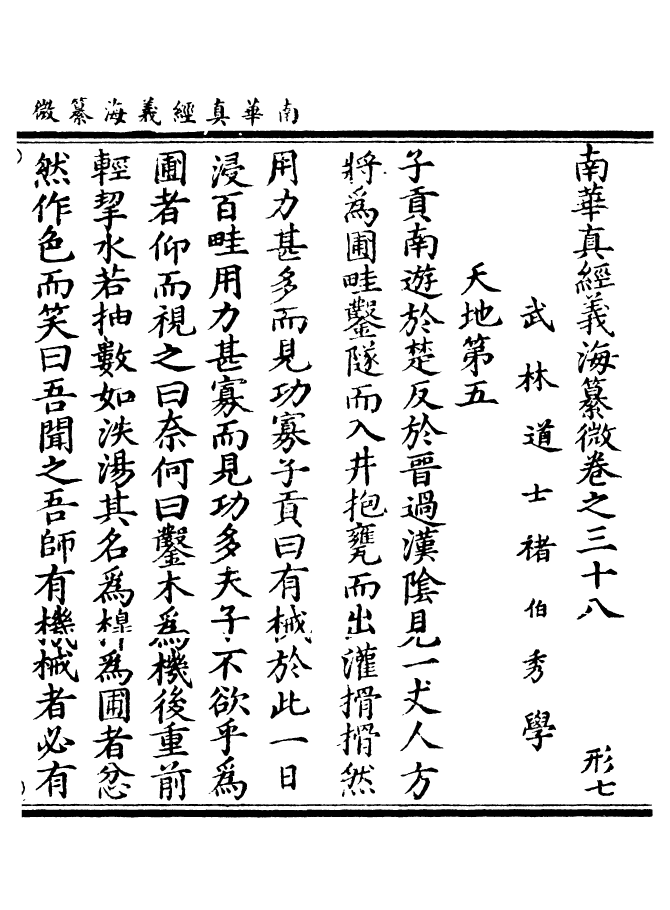 南華真經義海纂微
南華真經義海纂微卷之三十八 形七
武林道士褚伯秀學
天地第五
子貢南遊於楚反於晉過漢陰見一丈人方
將為圃畦鑿隧而入井抱甕而出灌搰搰然
用力甚多而見功寡子貢曰有械於此一日
浸百畦用力甚寡而見功多夫子不欲乎為
圃者仰而視之曰奈何曰鑿木為機後重前
輕挈水若抽數如泆湯其名為槔為圃者忿
然作色而笑曰吾聞之吾師有機械者必有